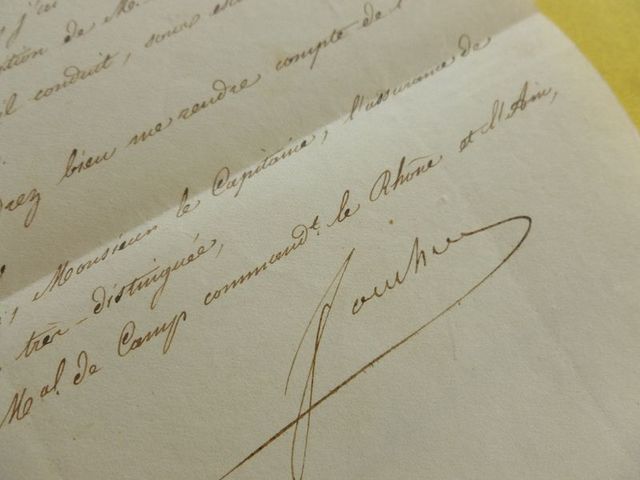 s j'ai
ption de M.
il conduit, sous
drez bien me rendre compte de l'
, Monsieur le Capitaine, l'assurance de
très-distinguée,
Mal. de Camp commandt. le Rhône et l'Ain,